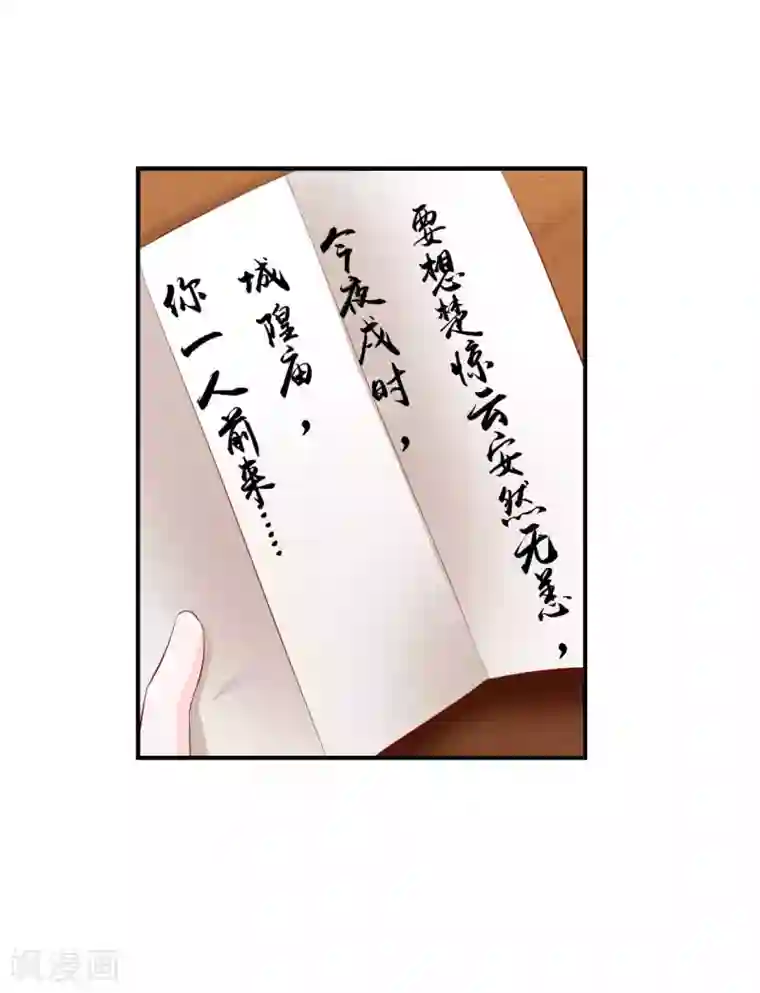 要想楚惊云安然无恙，
今夜戌时，
城隍庙，
你一人前来……
飒漫画